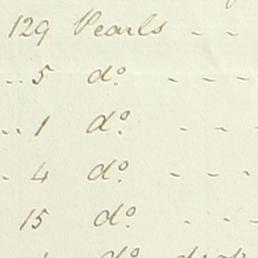 129 Pearls - -
-- 5 do - - -
-- 1 do - - -
- 4 do - - -
15 do - - -
do drop